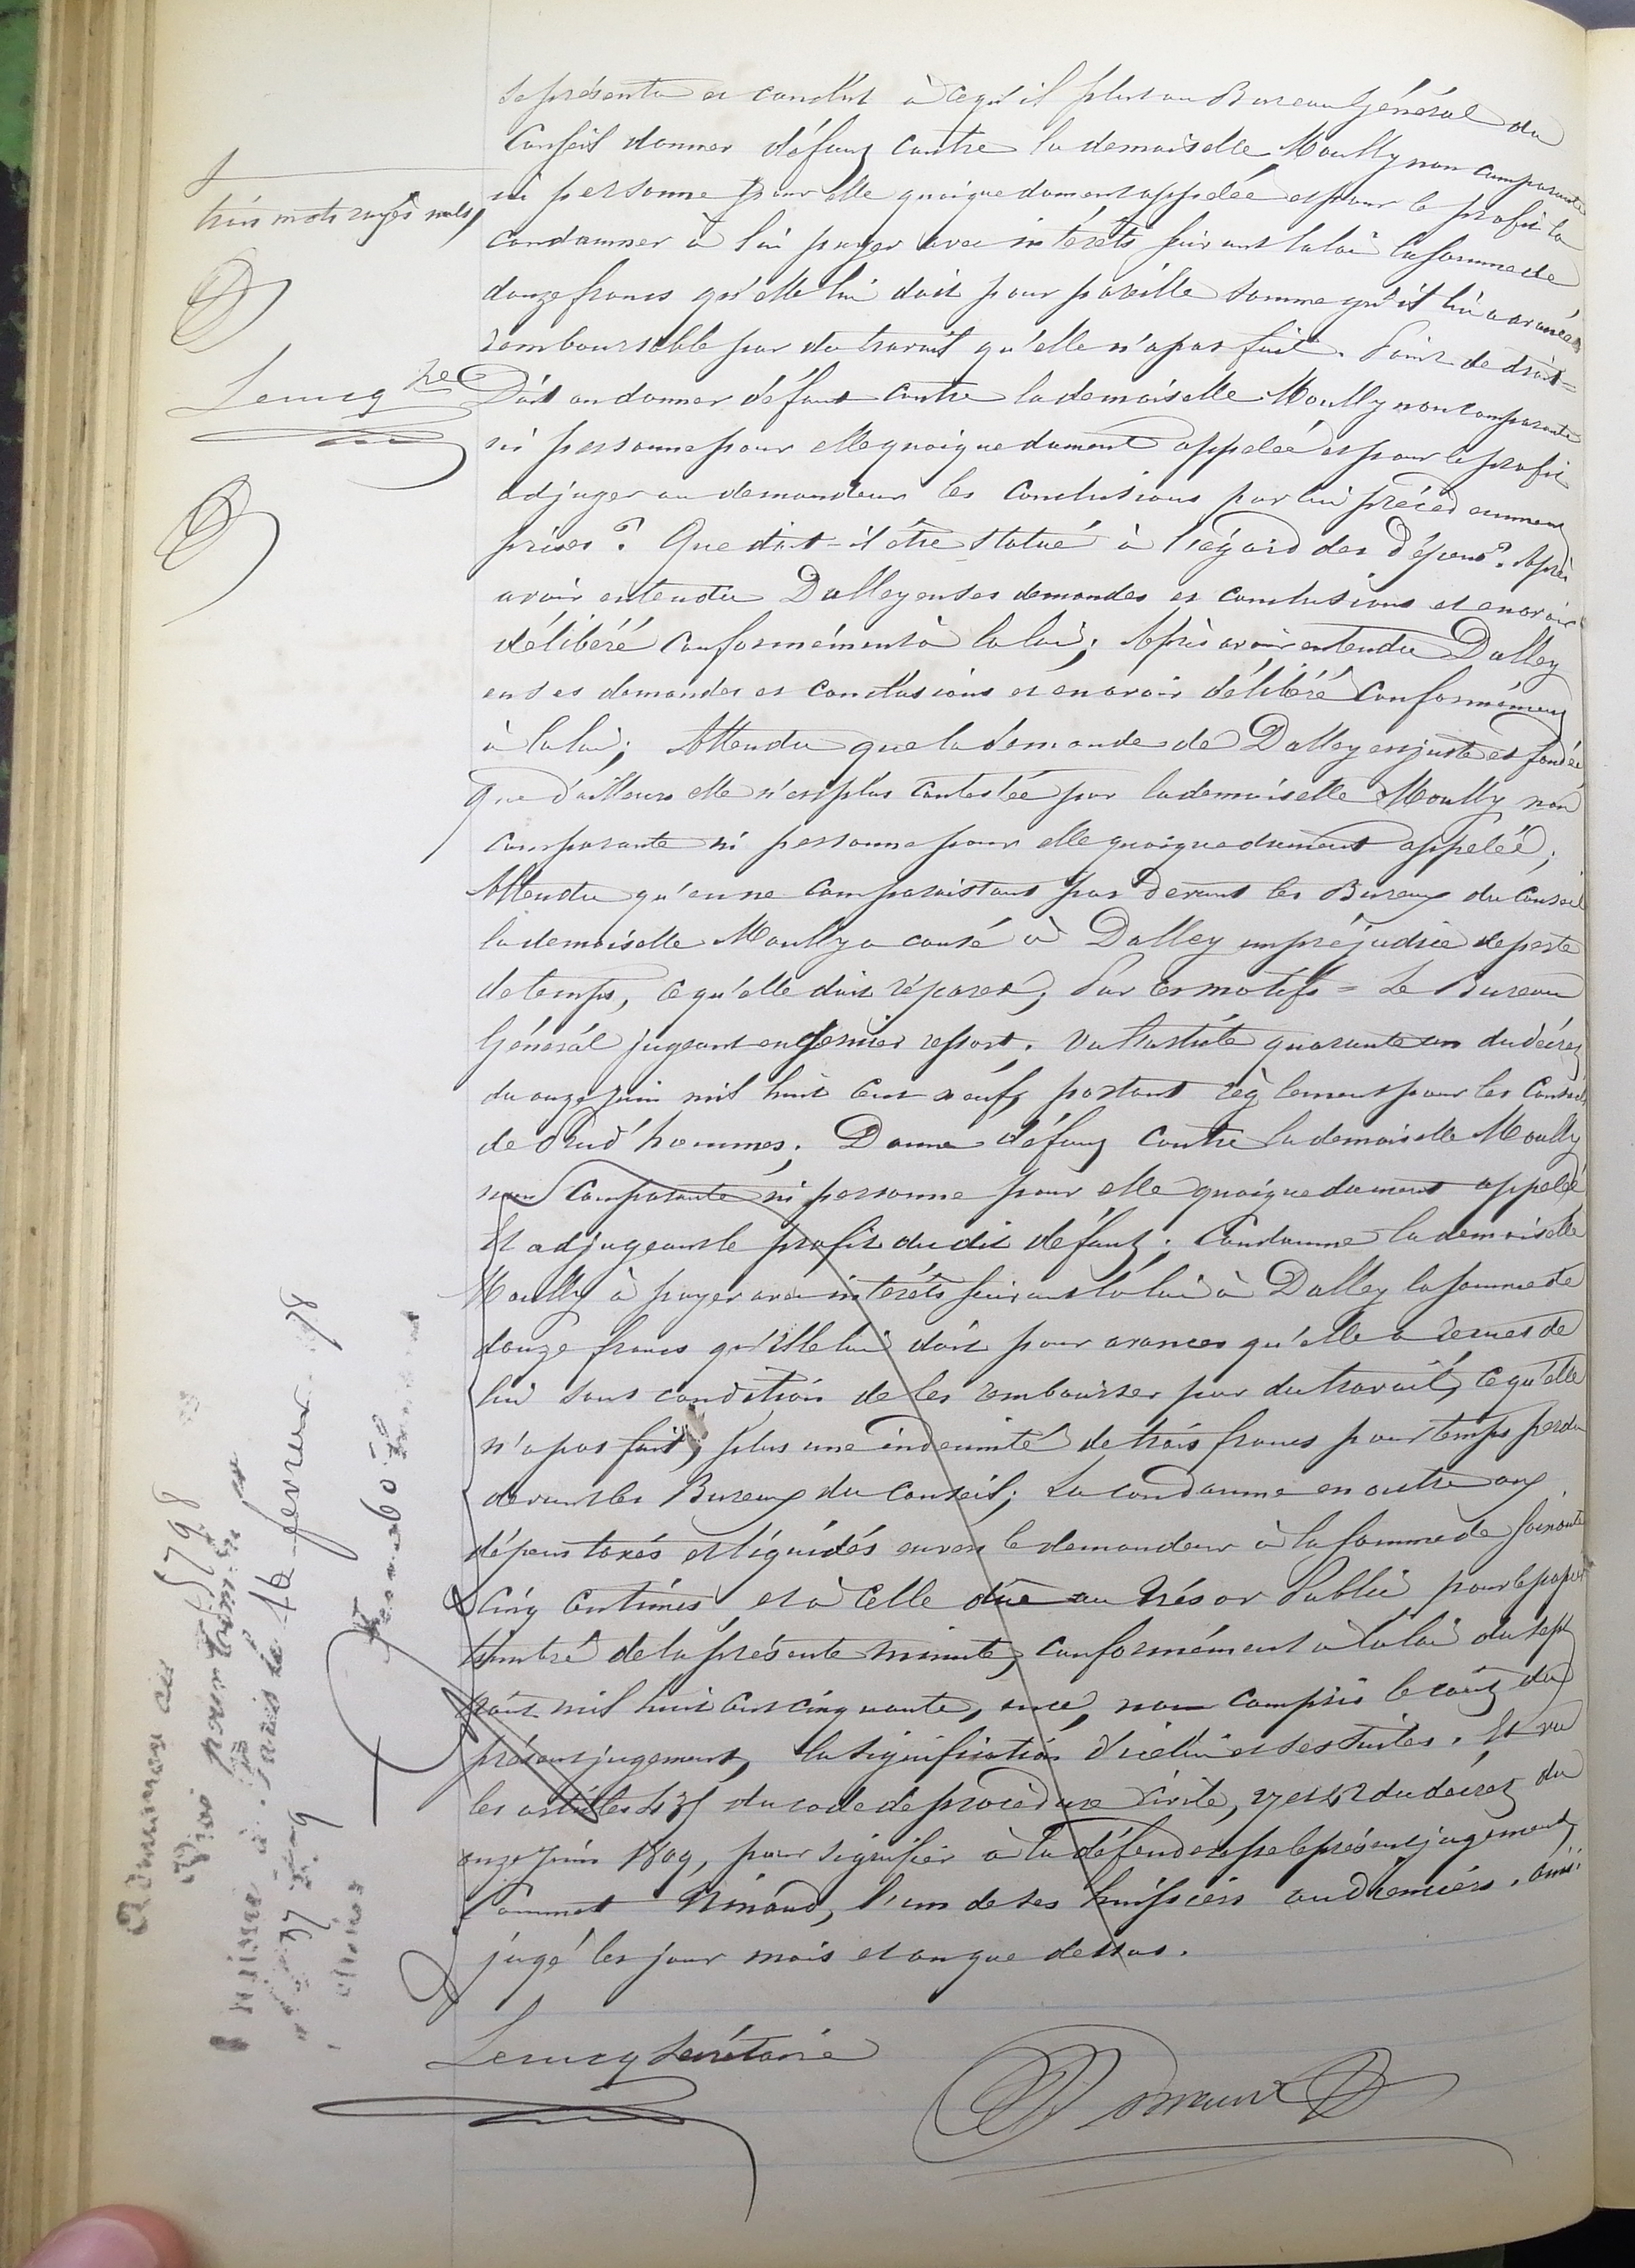 se présenta et conclut à ce qu'il plut au Bureau Général du
Conseil donner défaut contre la demoiselle Moully non comparante
ni personne pour elle quoique dument appelée et pour le profit la
condamner à lui payer avec intérêts suivant la loi la somme de
douze francs qu'elle lui doit pour pareille somme qu'il lui a avancée
remboursable par du travail qu'elle n'a pas fait. Point de droit =
Doit-on donner défaut contre la demoiselle Moully non comparante
ni personne pour elle quoique dument appelée et pour le profit
adjuger au demandeur les conclusions par lui précédemment
prises ? Que doit-il être statué à l'égard des dépens ? Après
avoir entendu Dalley en ses demandes et conclusions et en avoir
délibéré conformément à la loi ; Après avoir entendu Dalley
en ses demandes et conclusions et en avoir délibéré conformément
à la loi ; Attendu que la demande de Dalley est juste et fondée
que d'ailleurs elle n'est plus contestée par la demoiselle Moully non
comparante ni personne pour elle quoique dument appelée ;
Attendu qu'en ne comparaissant pas devant les Bureaux du Conseil
la demoiselle Moully a causé à Dalley un préjudice de perte
de temps, ce qu'elle doit réparer ; Par ces motifs = Le Bureau
Général jugeant en dernier ressort. Vu l'article quarante un du décret
du onze juin mil huit cent neuf, portant règlement pour les Conseils
de Prud'hommes ; Donne défaut contre la demoiselle Moully
non comparante ni personne pour elle quoique dument appelée
Et adjugeant le profit du dit défaut ; Condamne la demoiselle
Moully à payer avec intérêts suivant la loi à Dalley la somme de
douze francs qu'elle lui doit pour avances qu'elle a reçues de
lui sous condition de les rembourser par du travail, ce qu'elle
n'a pas fait, plus une indemnité de trois francs pour temps perdu
devant les Bureaux du Conseil ; La condamne en outre aux
dépens taxés et liquidés envers le demandeur à la somme de soixante
cinq centimes et à celle due au Trésor Public pour le papier
timbré de la présente minute, conformément à la loi du sept
août mil huit cent cinquante, ence, non compris le coût du
présent jugement, la signification d'icelui et ses suites. Et vu
les articles 435 du code de procédure civile, 27 et 42 du décret du
onze juin 1809, pour signifier à la défenderesse le présent jugement,
Commet l'un de ses huissiers audienciers. Ainsi
jugé les jour mois et an que dessus.
Lecucq Secrétaire
trois mots rayés nuls,
Lecucq
16 février 78